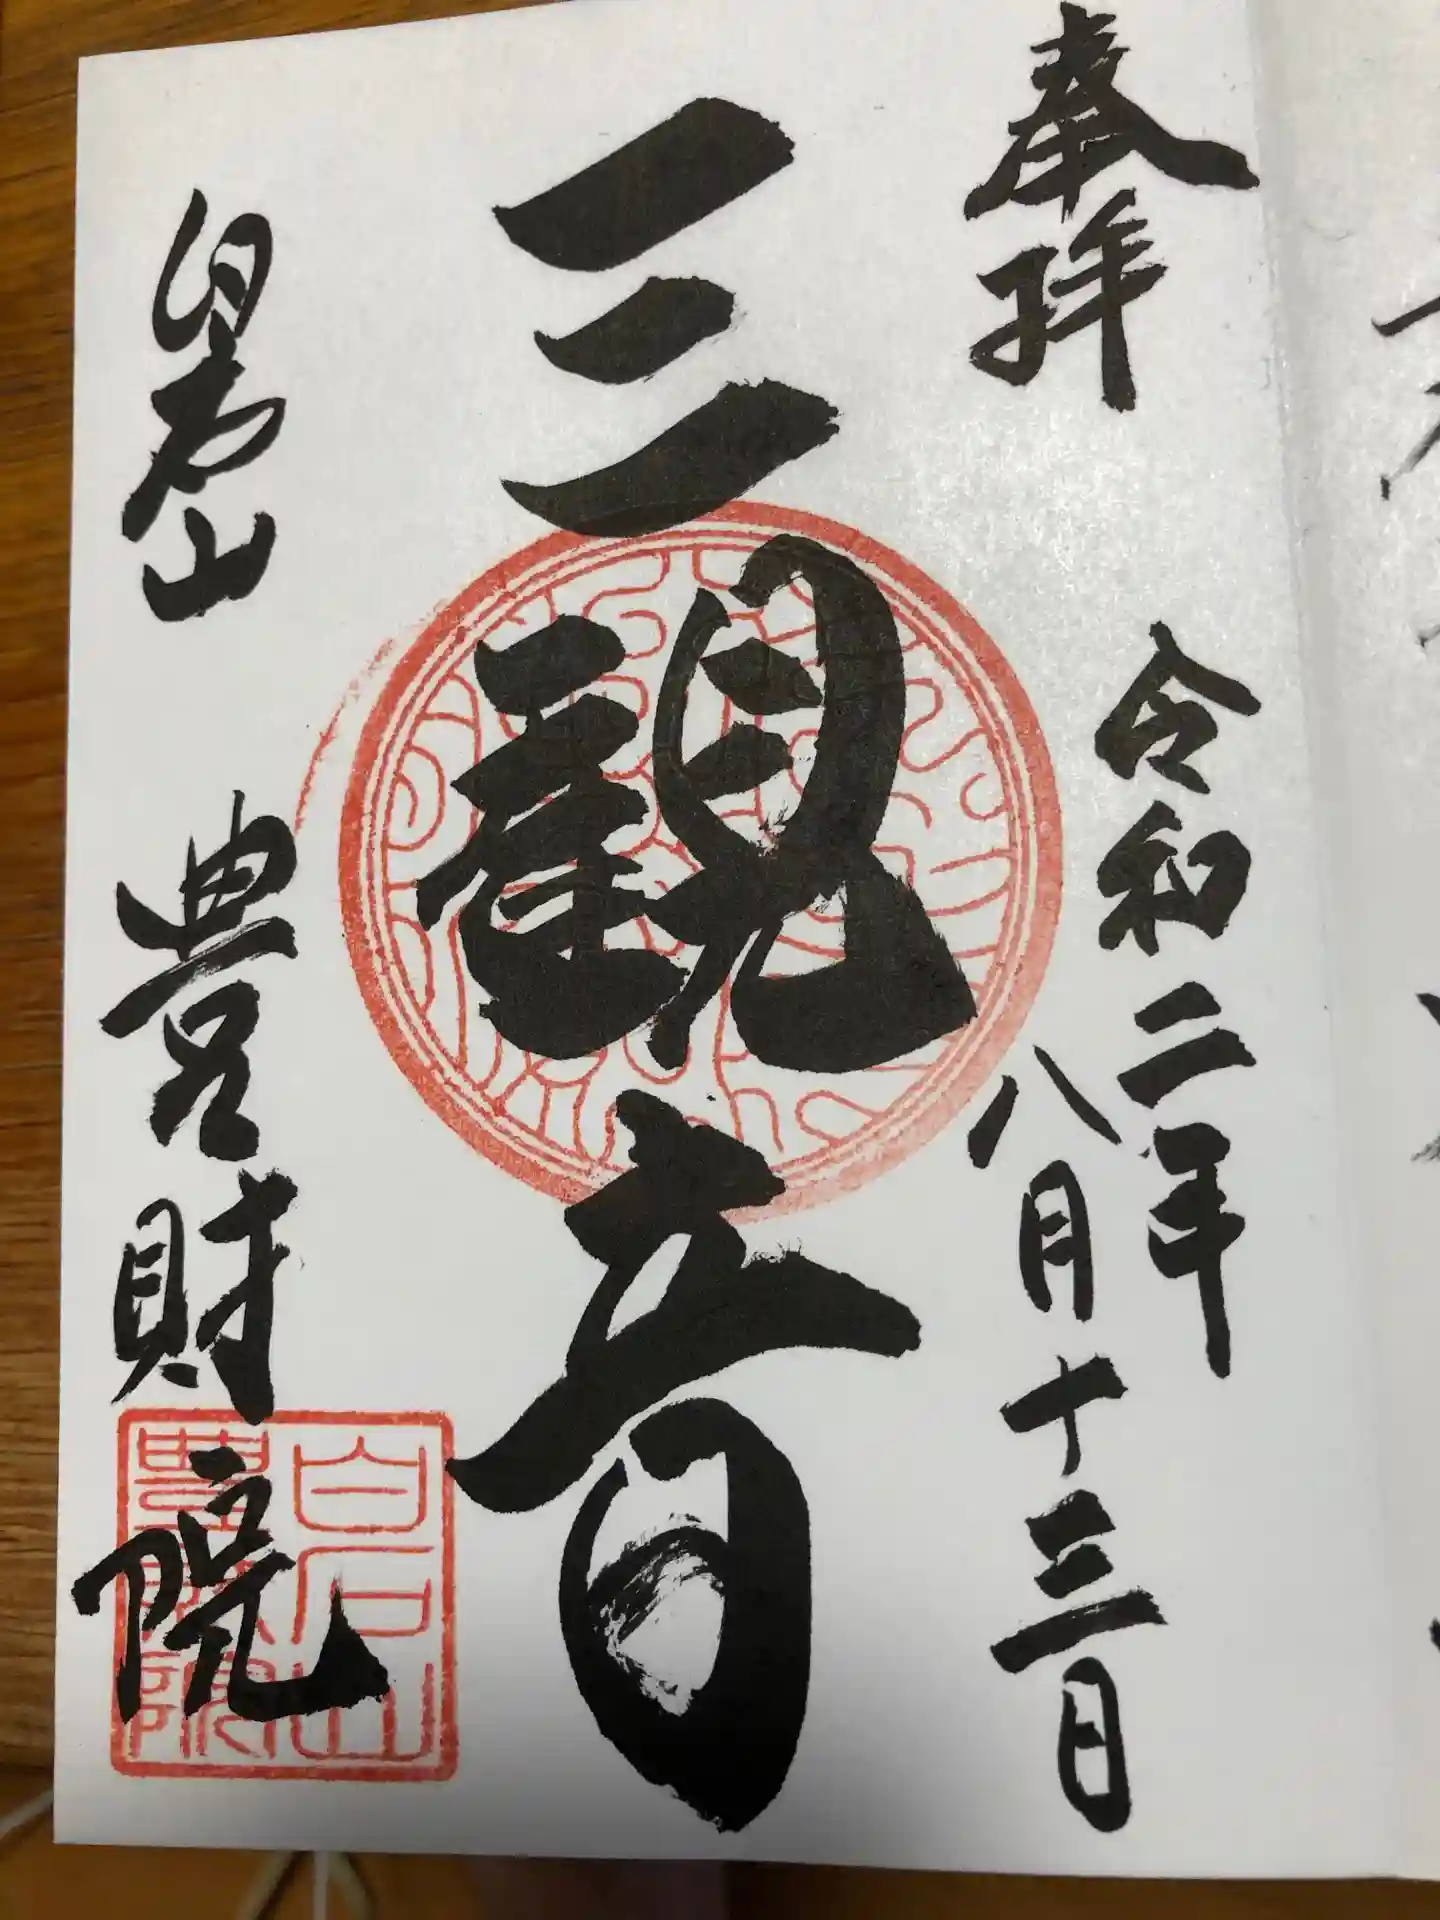 奉拝
令和二年
八月十三日
三観音
白石山 豊財院
白石山
豊財院